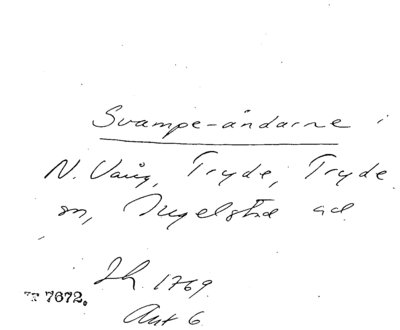 Svampe-åndarne i
N. Vång, Tryde, Tryde
sn, Ingelstad hd.
Lh. 1769.
7672.
Ant 6